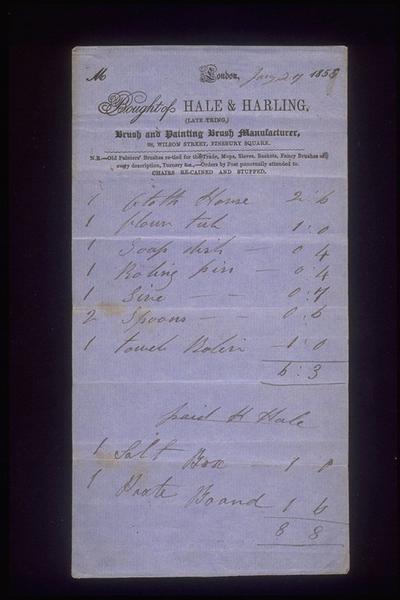 M London, Jany 29 1858
Bought of HALE & HARLING,
(LATE TRING,)
Brush and Painting Brush Manufacturer,
WILSON STREET, FINSBURY SQUARE.
N.B.—Old Painters' Brushes re-tied for the Trade, Mops, Sieves, Baskets, Fancy Brushes of
every description, Turnery &c.,—Orders by Post punctually attended to.
CHAIRS RE-CAINED AND STUFFED.
1 Cloth Horse 2:6
1 flour tub 1:0
1 Soap dish — 0 4
1 Roling pin — 0:4
1 Sive — — 0:7
2 Spoons — — 0:6
1 towel Rolin — 1:0
6:3
paid H Hale
1 Salt Box 1 0
1 Paste Board 1 6
8 8